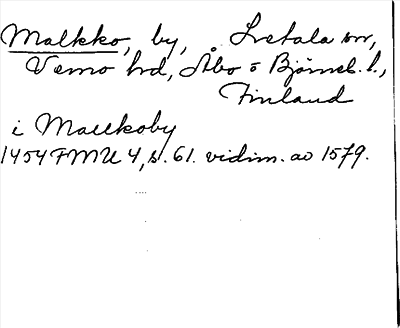 Malkko, by, Letala snr,
Vemo hrd, Åbo o Björneb. l.,
Finland
i Maelkoby
1454 FMU 4, s. 61. vidim. av 1579.